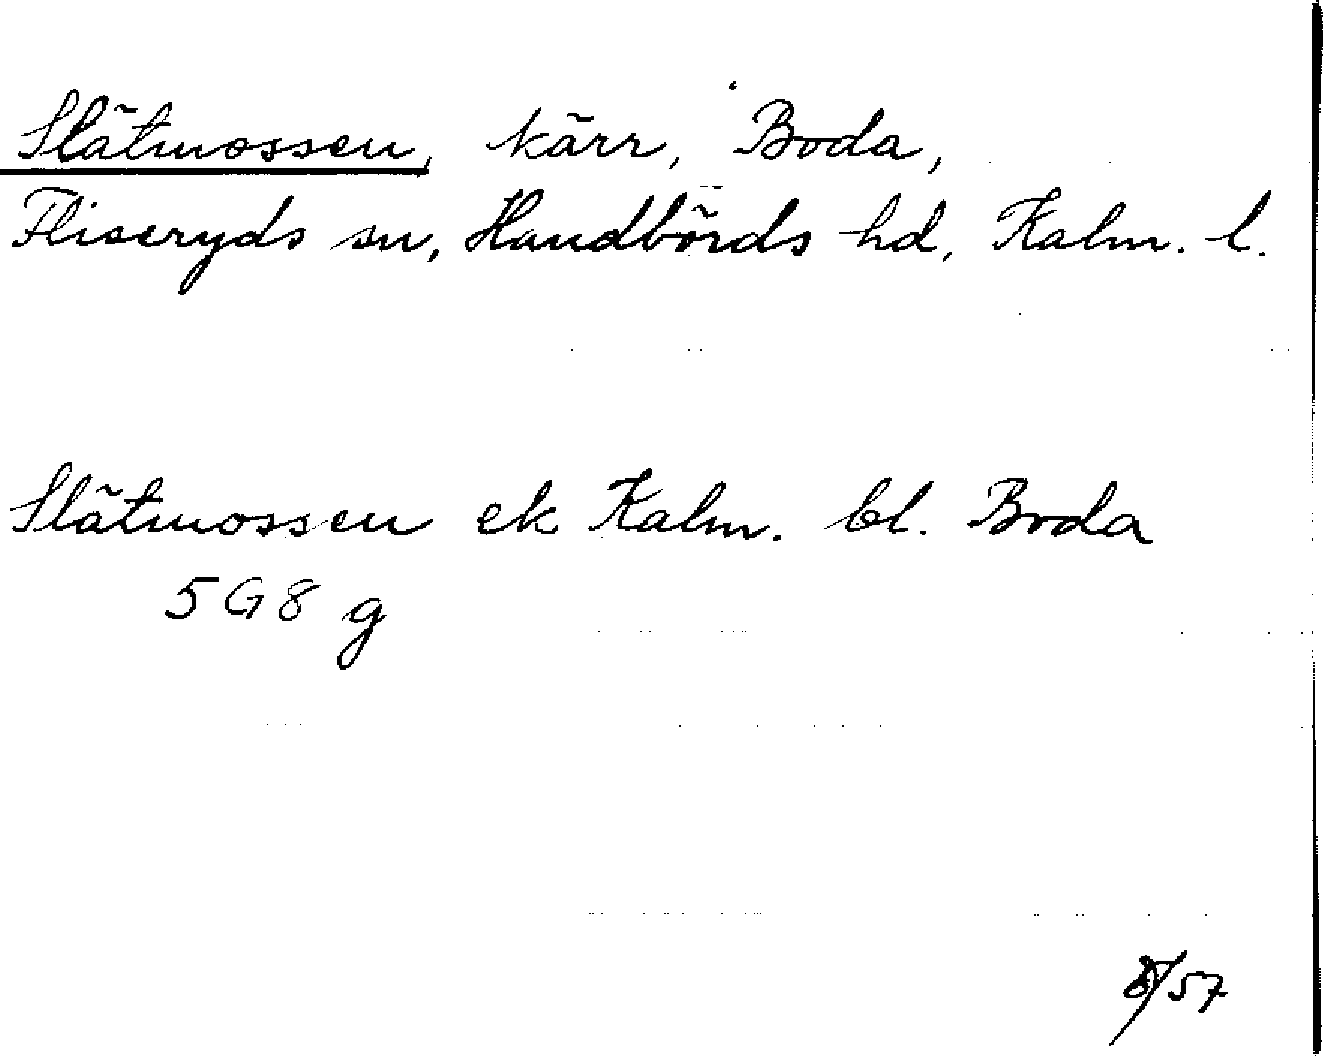 Slätmossen, kärr, Boda,
Fliseryds sn, Handbörds hd, Kalm. l.
Slätmossen ek Kalm. bl. Boda
5G8 g
/57